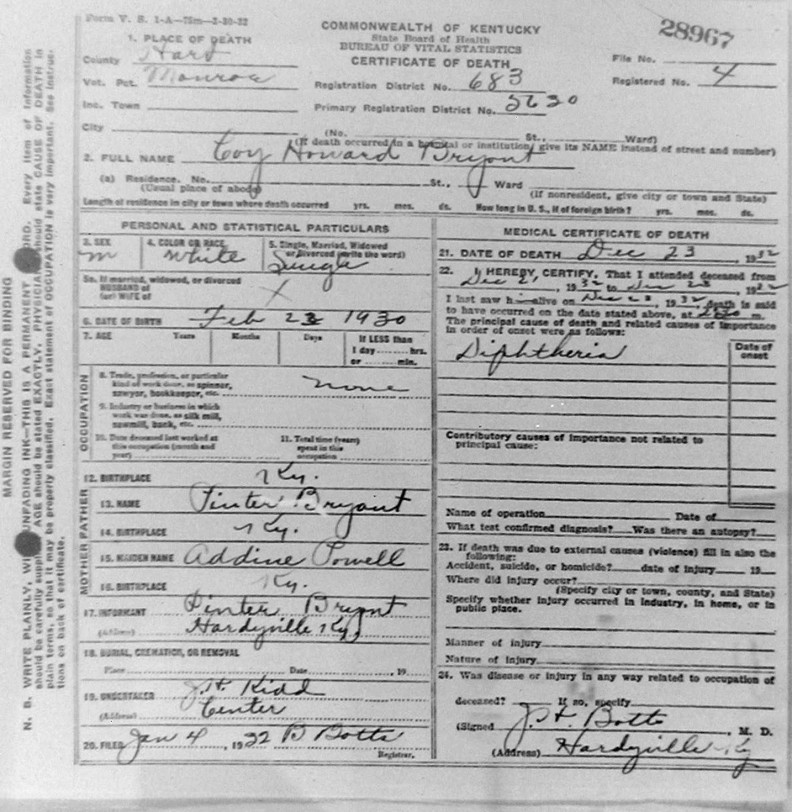 Form V. S. 1-A—75m—3-30-32
COMMONWEALTH OF KENTUCKY
State Board of Health
BUREAU OF VITAL STATISTICS
CERTIFICATE OF DEATH
28967
1. PLACE OF DEATH
County Hart
Vot. Pct. Monroe
Inc. Town
City
Registration District No. 683
Primary Registration District No. 5630
File No.
Registered No. 4
(No. St., Ward)
(If death occurred in a hospital or institution, give its NAME instead of street and number)
2. FULL NAME Coy Howard Bryant
(a) Residence. No. St., Ward
(Usual place of abode) (If nonresident, give city or town and State)
Length of residence in city or town where death occurred yrs. mos. ds. How long in U. S., if of foreign birth? yrs. mos. ds.
PERSONAL AND STATISTICAL PARTICULARS
3. SEX
m
4. COLOR OR RACE
White
5. Single, Married, Widowed
or Divorced (write the word)
Single
5a. If married, widowed, or divorced
HUSBAND of
(or) WIFE of X
6. DATE OF BIRTH Feb 23 1930
7. AGE Years Months Days If LESS than
1 day ........ hrs.
or ........ min.
OCCUPATION
8. Trade, profession, or particular
kind of work done, as spinner,
sawyer, bookkeeper, etc. none
9. Industry or business in which
work was done, as silk mill,
sawmill, bank, etc.
10. Date deceased last worked at
this occupation (month and
year)
11. Total time (years)
spent in this
occupation
12. BIRTHPLACE Ky.
FATHER
13. NAME Pinter Bryant
14. BIRTHPLACE Ky.
MOTHER
15. MAIDEN NAME Addine Powell
16. BIRTHPLACE Ky.
17. INFORMANT Pinter Bryant
(Address) Hardyville Ky.
18. BURIAL, CREMATION, OR REMOVAL
Place Date , 19
19. UNDERTAKER J. H. Kidd
(Address) Center
20. FILED Jan 4, 1932 B Botts
Registrar.
MEDICAL CERTIFICATE OF DEATH
21. DATE OF DEATH Dec 23 1932
22. I HEREBY CERTIFY, That I attended deceased from
Dec 21, 1932 to Dec 23, 1932
I last saw h alive on Dec 23, 1932, death is said
to have occurred on the date stated above, at m.
The principal cause of death and related causes of importance
in order of onset were as follows:
Date of
onset
Diphtheria
Contributory causes of importance not related to
principal cause:
Name of operation Date of
What test confirmed diagnosis? Was there an autopsy?
23. If death was due to external causes (violence) fill in also the
following:
Accident, suicide, or homicide? date of injury 19
Where did injury occur?
(Specify city or town, county, and State)
Specify whether injury occurred in industry, in home, or in
public place.
Manner of injury
Nature of injury
24. Was disease or injury in any way related to occupation of
deceased? If so, specify
(Signed J. H. Botts, M. D.
(Address) Hardyville Ky
MARGIN RESERVED FOR BINDING
N. B. WRITE PLAINLY, WI UNFADING INK—THIS IS A PERMANENT ORD. Every item of information
should be carefully suppli AGE should be stated EXACTLY. PHYSICIA should state CAUSE OF DEATH in
plain terms, so that it may be properly classified. Exact statement of OCCUPATION is very important. See instruc-
tions on back of certificate.